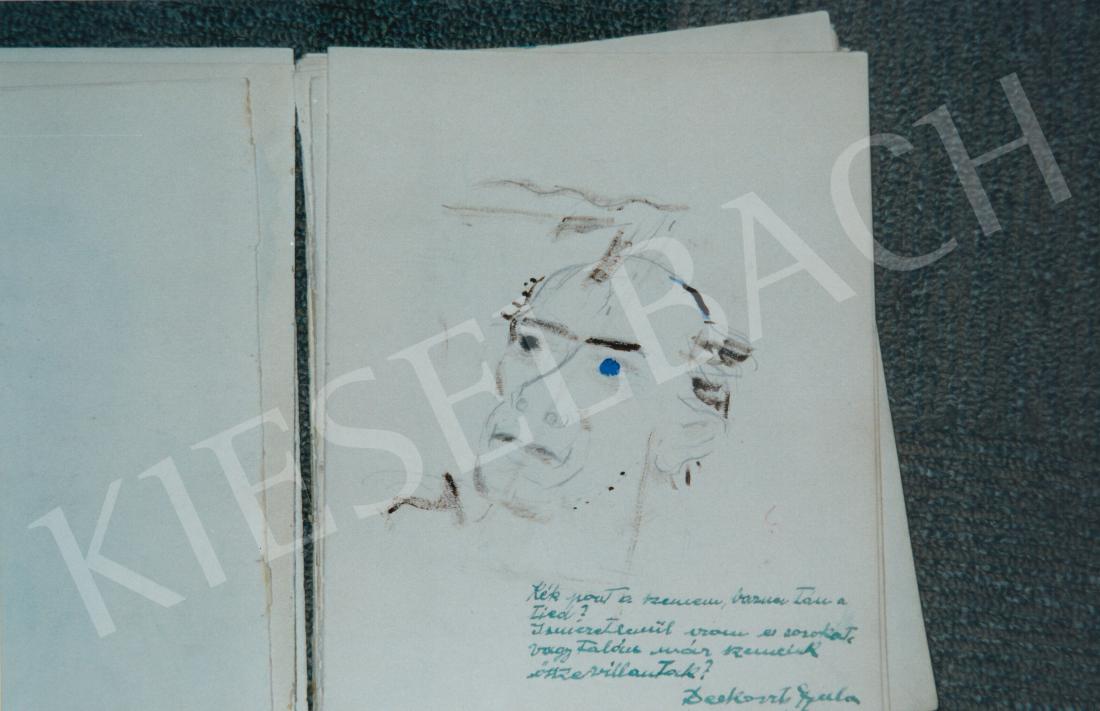 KIESELBACH
Kék pont a szemem, barna tán a
tied?
Ismeretlenül irom e sorokat,
vagy talán már szemeink
összevillantak?
Gyula